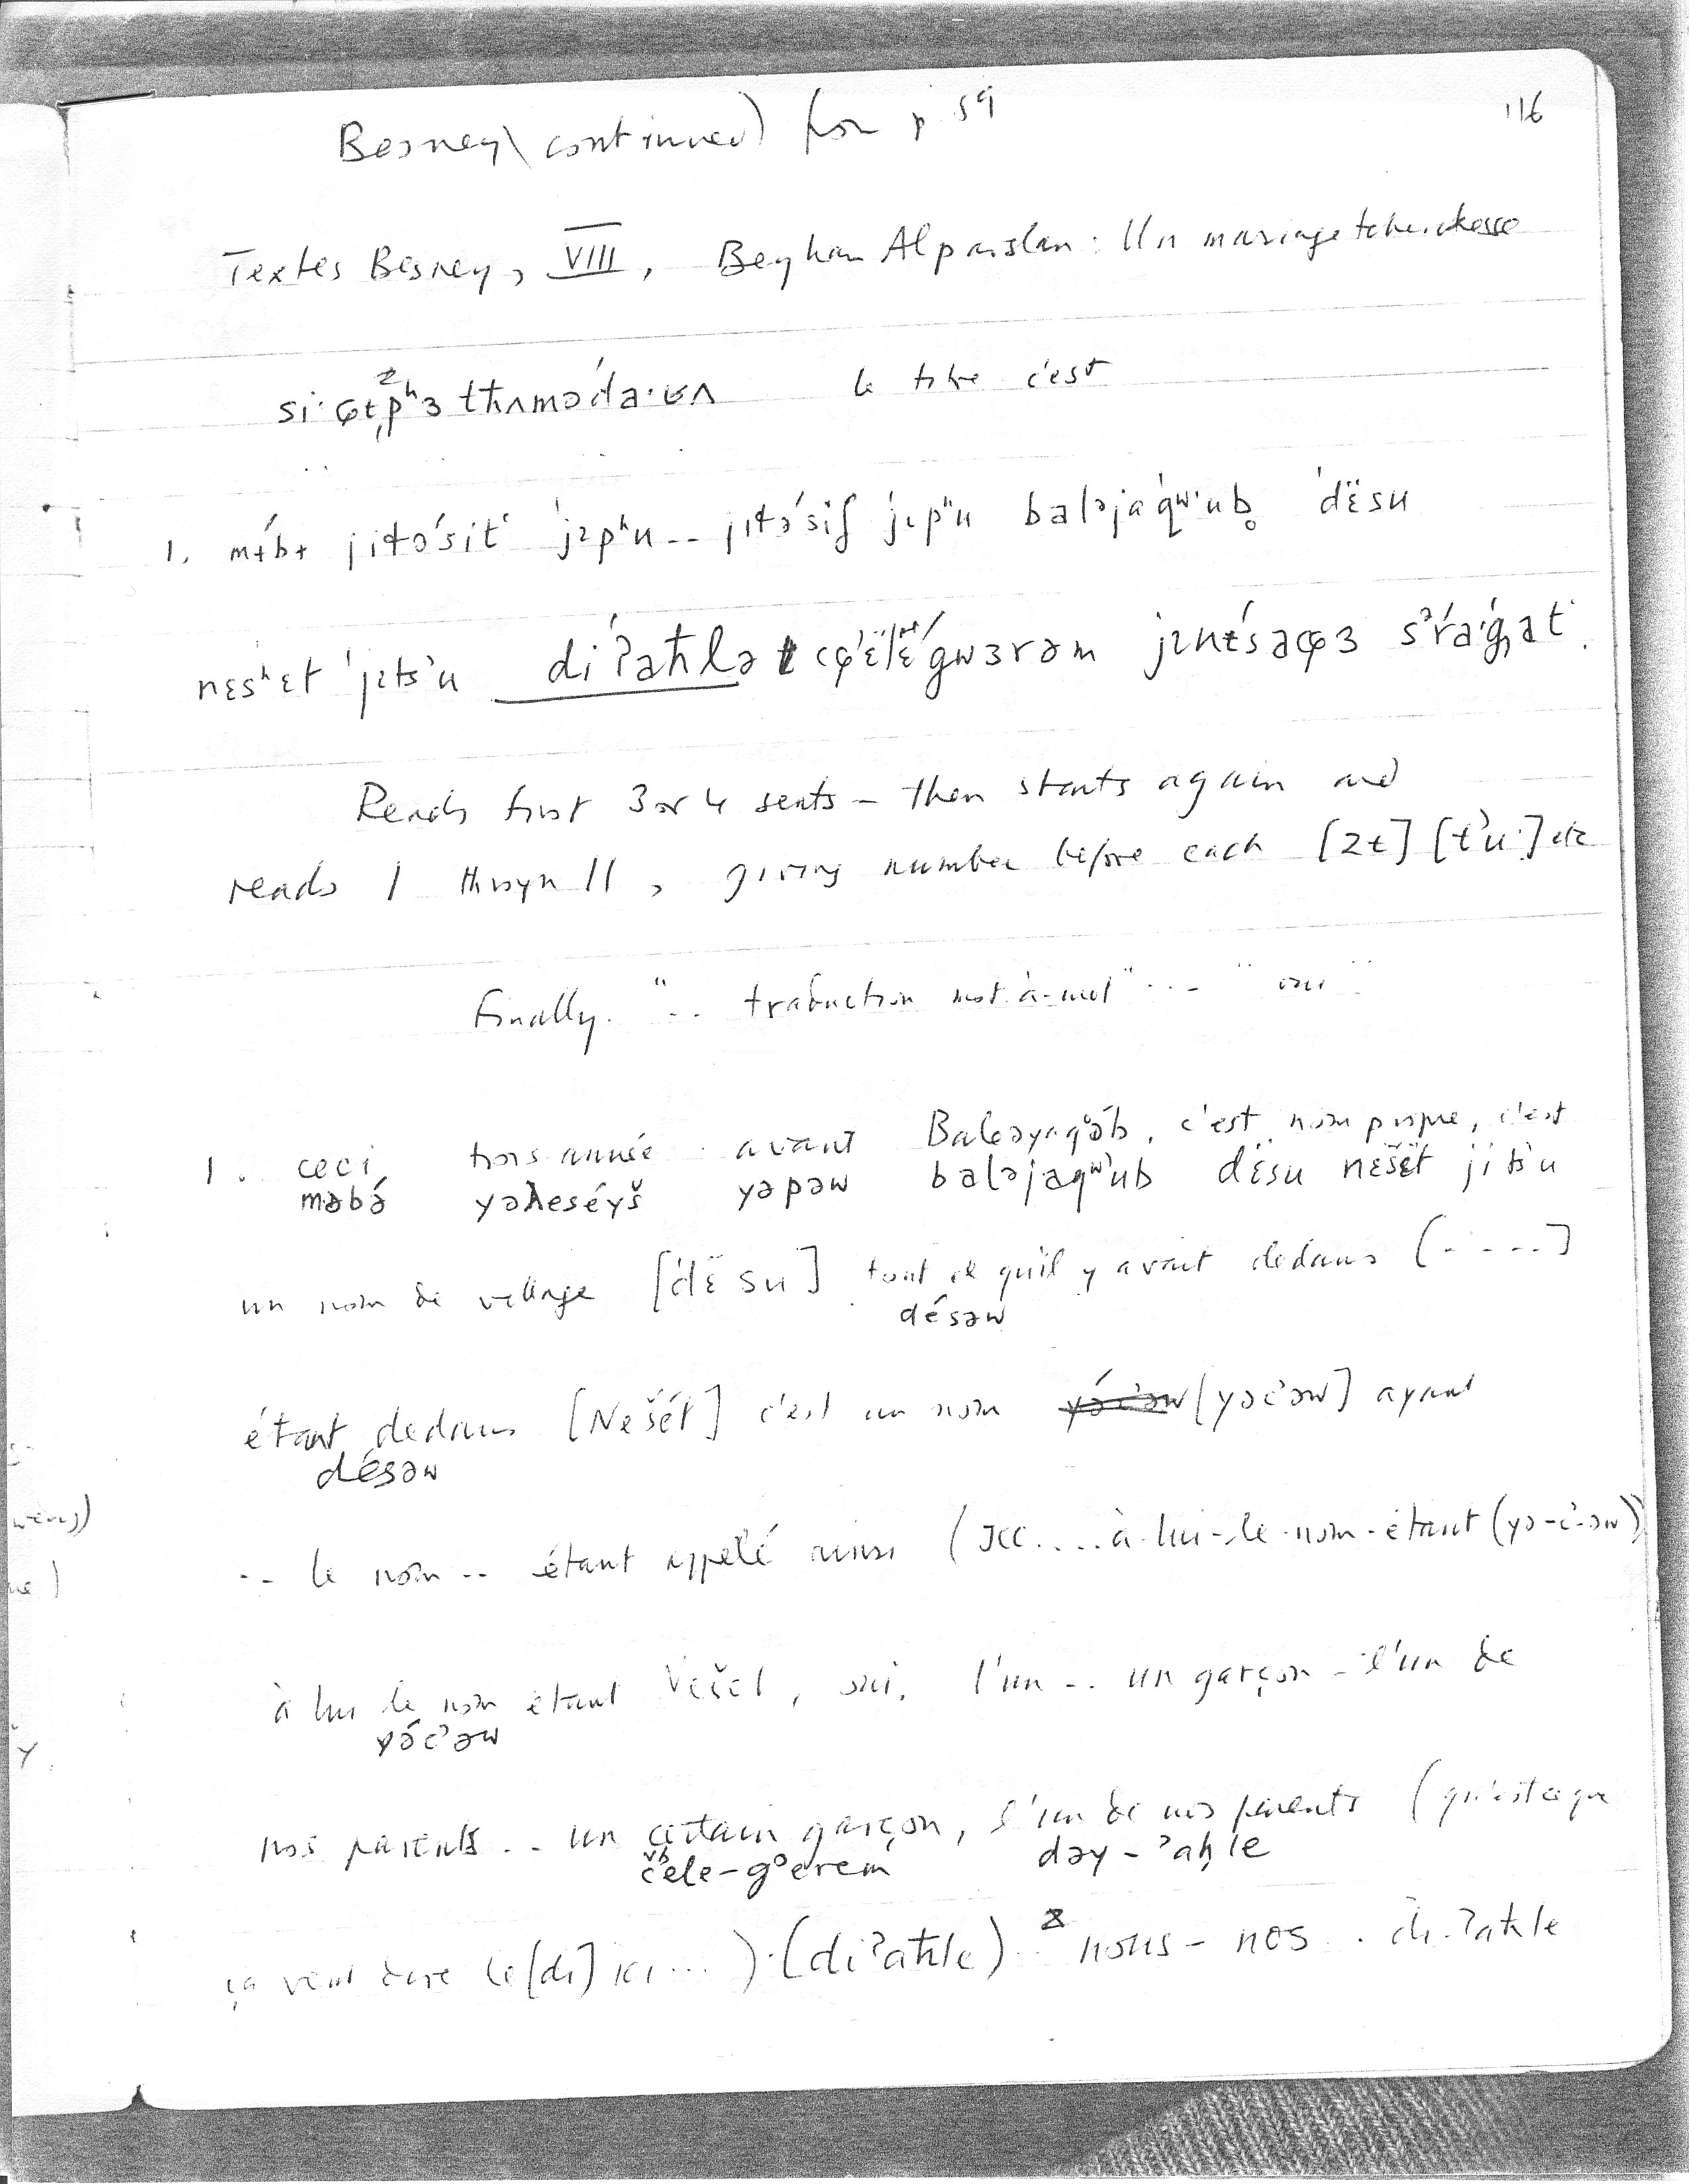 116
Besney (continued) from p 59
Textes Besney, VIII, Beyhan Alparslan: Un mariage tcherkesse
le titre c'est
1. mɨbɨ jiɬə́sit jɪpʰu -- jiɬə́siʃ jɪpʰu baləjaqʷub dɛ̈su
nɛsʰɛt jɪts'u diʔaħlə
Reads first 3 or 4 sents – then starts again and
reads 1 through 11, giving number before each [zɨ] [t'u] etc
Finally. "-- traduction mot-à-mot" --- "oui"
1. ceci trois année avant Baləyaqᵒəb, c'est nom propre, c'est
məbə́ yəλeséyš yəpəw baləjaqʷ'ub dɛ̈su nɛšɛ̈t jits'u
un nom de village [dɛ̈su] tout ce qu'il y avait dedans (-----]
désəw
étant dedans [Nešét] c'est un nom [yəc'əw] ayant
désəw
-- le nom -- étant appelé ainsi (JCC .... à-lui-le-nom-étant (yə-c'-əw))
à lui le nom étant Nešet, oui, l'un -- un garçon – l'un de
yə́c'əw
nos parents -- un certain garçon, l'un de nos parents (qu'est ce que
čʰele-gᵒerem dəy-ʔaḥle
ça veut dire le [di] ici ...) (diʔaħle) nous – nos . di-ʔaħle